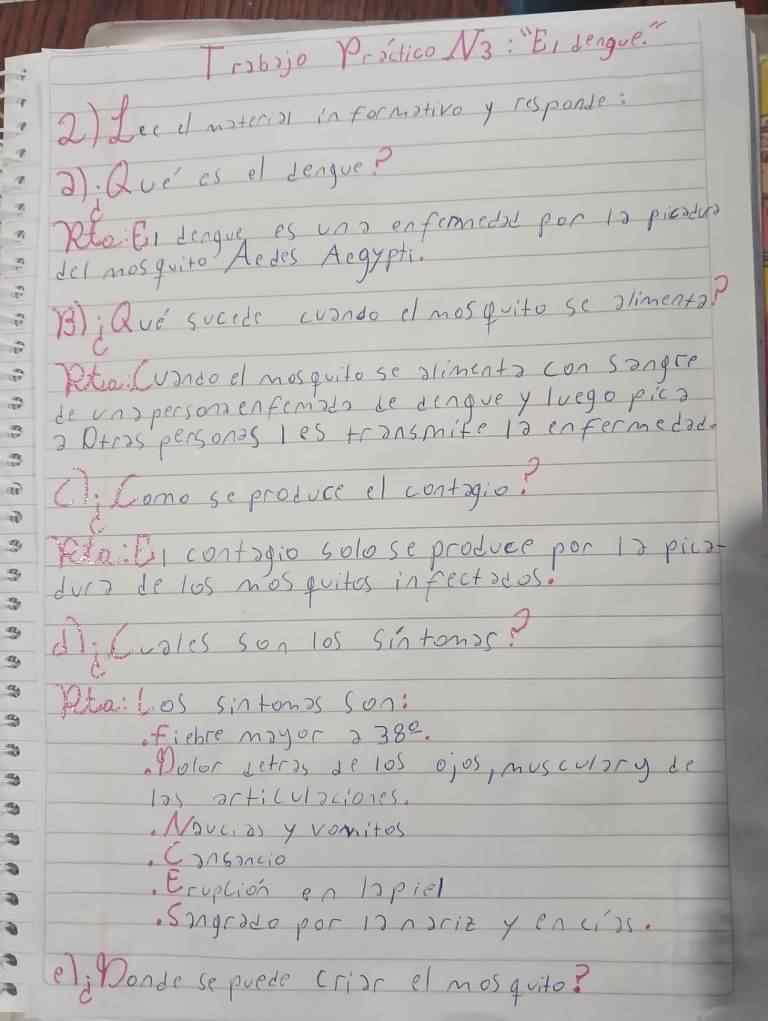 Trabajo Práctico N3: "El dengue."
2) Lee el material informativo y responde:
a) ¿Qué es el dengue?
Rta: El dengue es una enfermedad por la picadura
del mosquito Aedes Aegypti.
B) ¿Qué sucede cuando el mosquito se alimenta?
Rta: Cuando el mosquito se alimenta con sangre
de una persona enfemada de dengue y luego pica
a Otras personas les transmite la enfermedad.
C) ¿Como se produce el contagio?
Rta: El contagio solo se produce por la pica-
dura de los mosquitos infectados.
d) ¿Cuales son los síntomas?
Rta: Los sintomas son:
.fiebre mayor a 38º.
.Dolor detras de los ojos, muscular y de
las articulaciones.
.Naucias y vomitos
.Cansancio
.Erupción en la piel
.Sangrado por la nariz y encías.
e) ¿Donde se puede criar el mosquito?